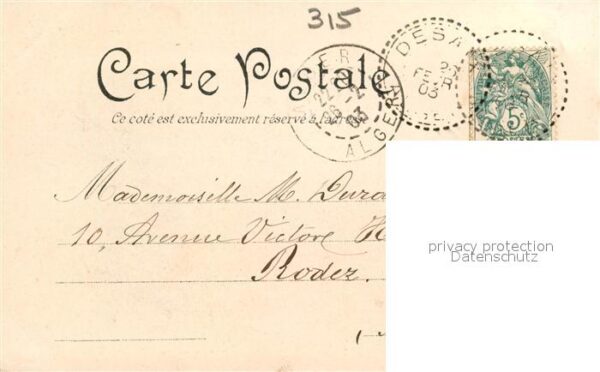 315
Carte Postale
Ce coté est exclusivement réservé à l'adresse
DESA
22
FEVR
03
ALGER
22
-2
03
5c
Mademoiselle M. Dura
10, Avenue Victor H
Rodez.
privacy protection
Datenschutz